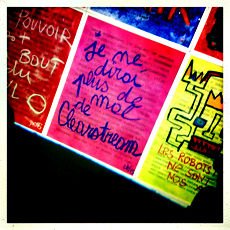 POUVOIR
BOUT
DU
je ne
dirai
plus de
mal
de
Clearstream
LES ROBOTS
NE SONT
NOS